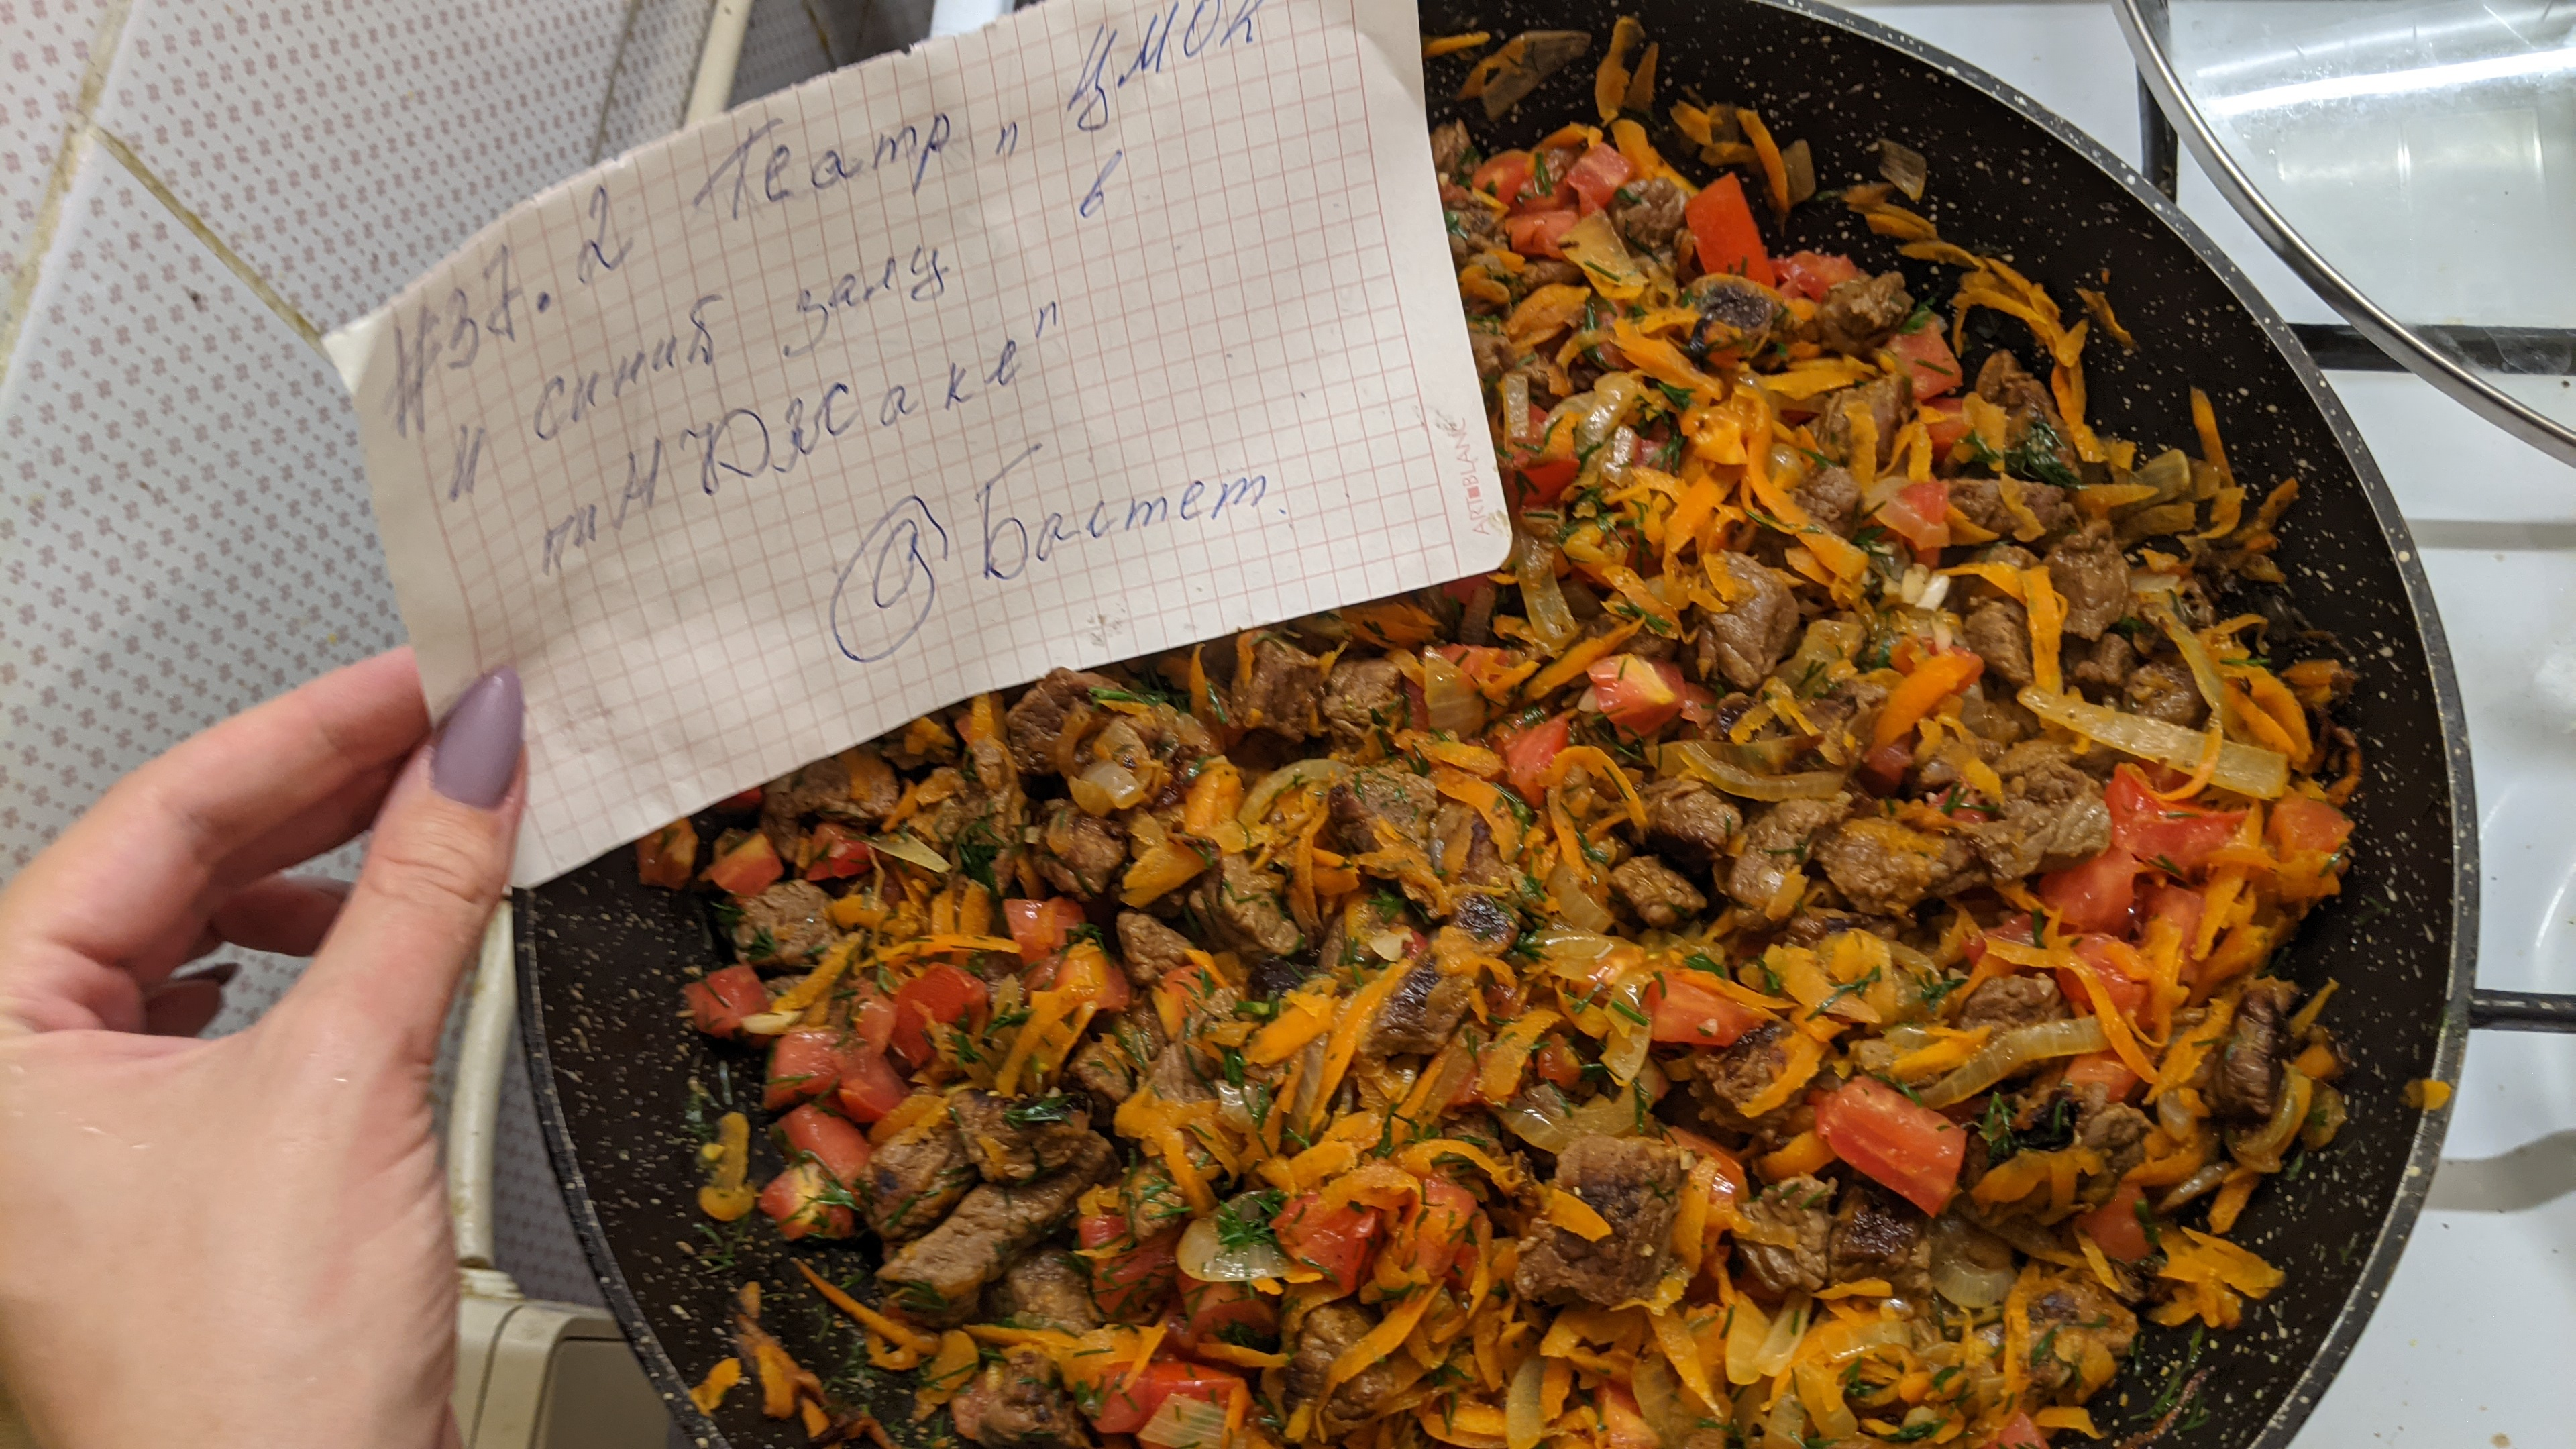 #37. 2 Театр „ ЦМОК
и синий залу в
пиНЮЖаке"
@ Бастет.
ARTBLANC